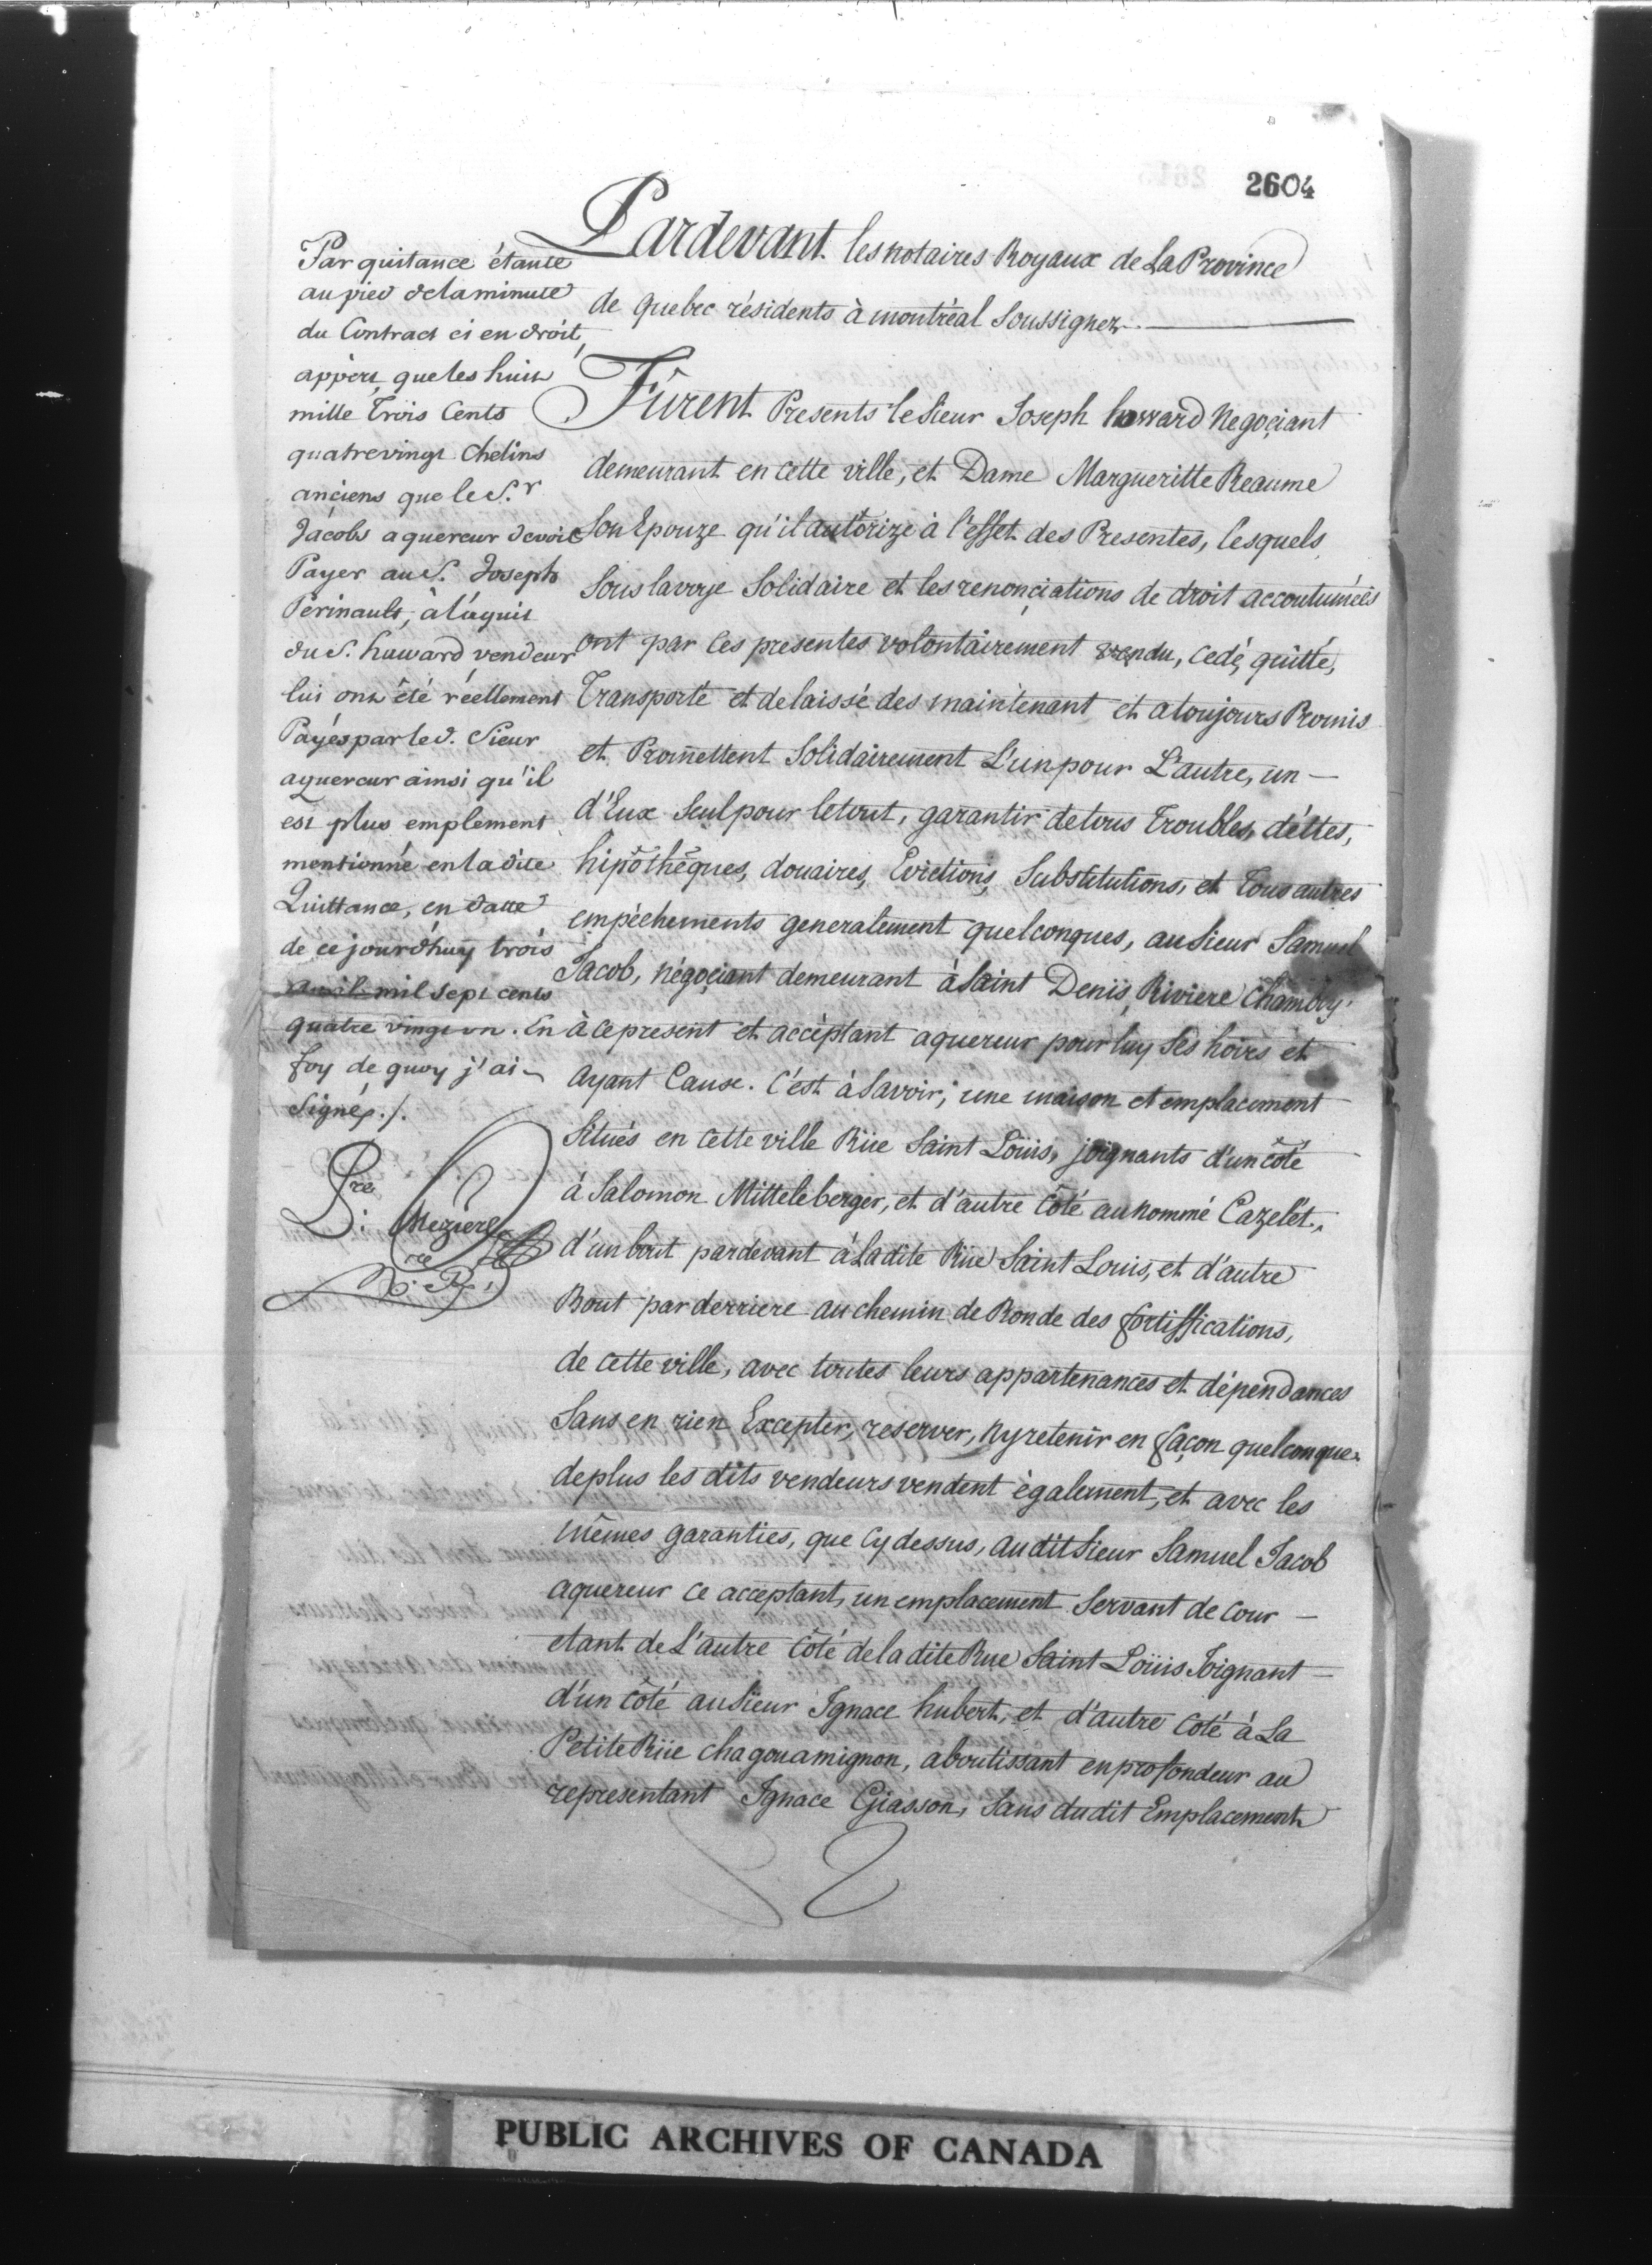 2604
Par quitance étante
au pied de la minute
du Contract ci en droit,
appèrt que les huit
mille Trois Cents
quatrevingt Chelins
anciens que le S.r
Jacobs aquereur devoit
Payer au S. Joseph
Perinault, à l'aquit
du S. haward vendeur
lui ont été réellement
Payés par le d. Sieur
aquereur ainsi qu'il
est plus emplement
mentionné en la dite
Quittance, en datte
de ce jourd'huy trois
avril mil sept cents
quatre vingt un. En
foy de quoy j'ai
Signé, ./.
P.re Mezière
N.re
Pardevant les notaires Royaux de La Province
de Quebec résidents à montréal Soussignez
Fûrent Presents le Sieur Joseph howard Negoçiant
demeurant en cette ville, et Dame Margueritte Reaume
Son Epouze qu'il autorize à l'effet des Presentes, lesquels
Sous la voye Solidaire et les renonçiations de droit accoutumées
ont par ces presentes volontairement vendu, cedé, quitté,
Transporté et delaissé des maintenant et a toujours Promis
et Promettent Solidairement L'un pour L'autre, un –
d'Eux Seul pour le tout, garantir de tous Troubles, déttes,
hipôthêques, douaires, Evictions, Substitutions, et Tous autres
empéchements generalement quelconques, au Sieur Samuel
Jacob, négoçiant demeurant à Saint Denis, Riviere Chambly.
à ce present et accèptant aquereur pour luy Ses hoirs et
Ayant Cause. C'est à Savoir; une maison et emplacement
Situés en cette ville Rüe Saint Loüis, joignants d'un côté
à Salomon Mitteleberger, et d'autre Côté au nommé Cazelét,
d'un bout pardevant à La dite Rüe Saint Louis, et d'autre
Bout par derriere au chemin de Ronde des fortiffications,
de cette ville, avec toutes leurs appartenances et dépendances
Sans en rien Excepter, reserver, Ny retenir en façon quelconque.
deplus les dits vendeurs vendent également, et avec les
mêmes garanties, que Cy dessus, au dit Sieur Samuel Jacob
aquereur ce acceptant, un emplacement Servant de Cour –
etant de L'autre Côté de la dite Rue Saint Loüis Joignant –
d'un Côté au Sieur Ignace hubert, et d'autre Coté à La
Petite Rüe chagouamignon, aboutissant en profondeur au
representant Ignace Giasson, Sans dudit Emplacement
PUBLIC ARCHIVES OF CANADA